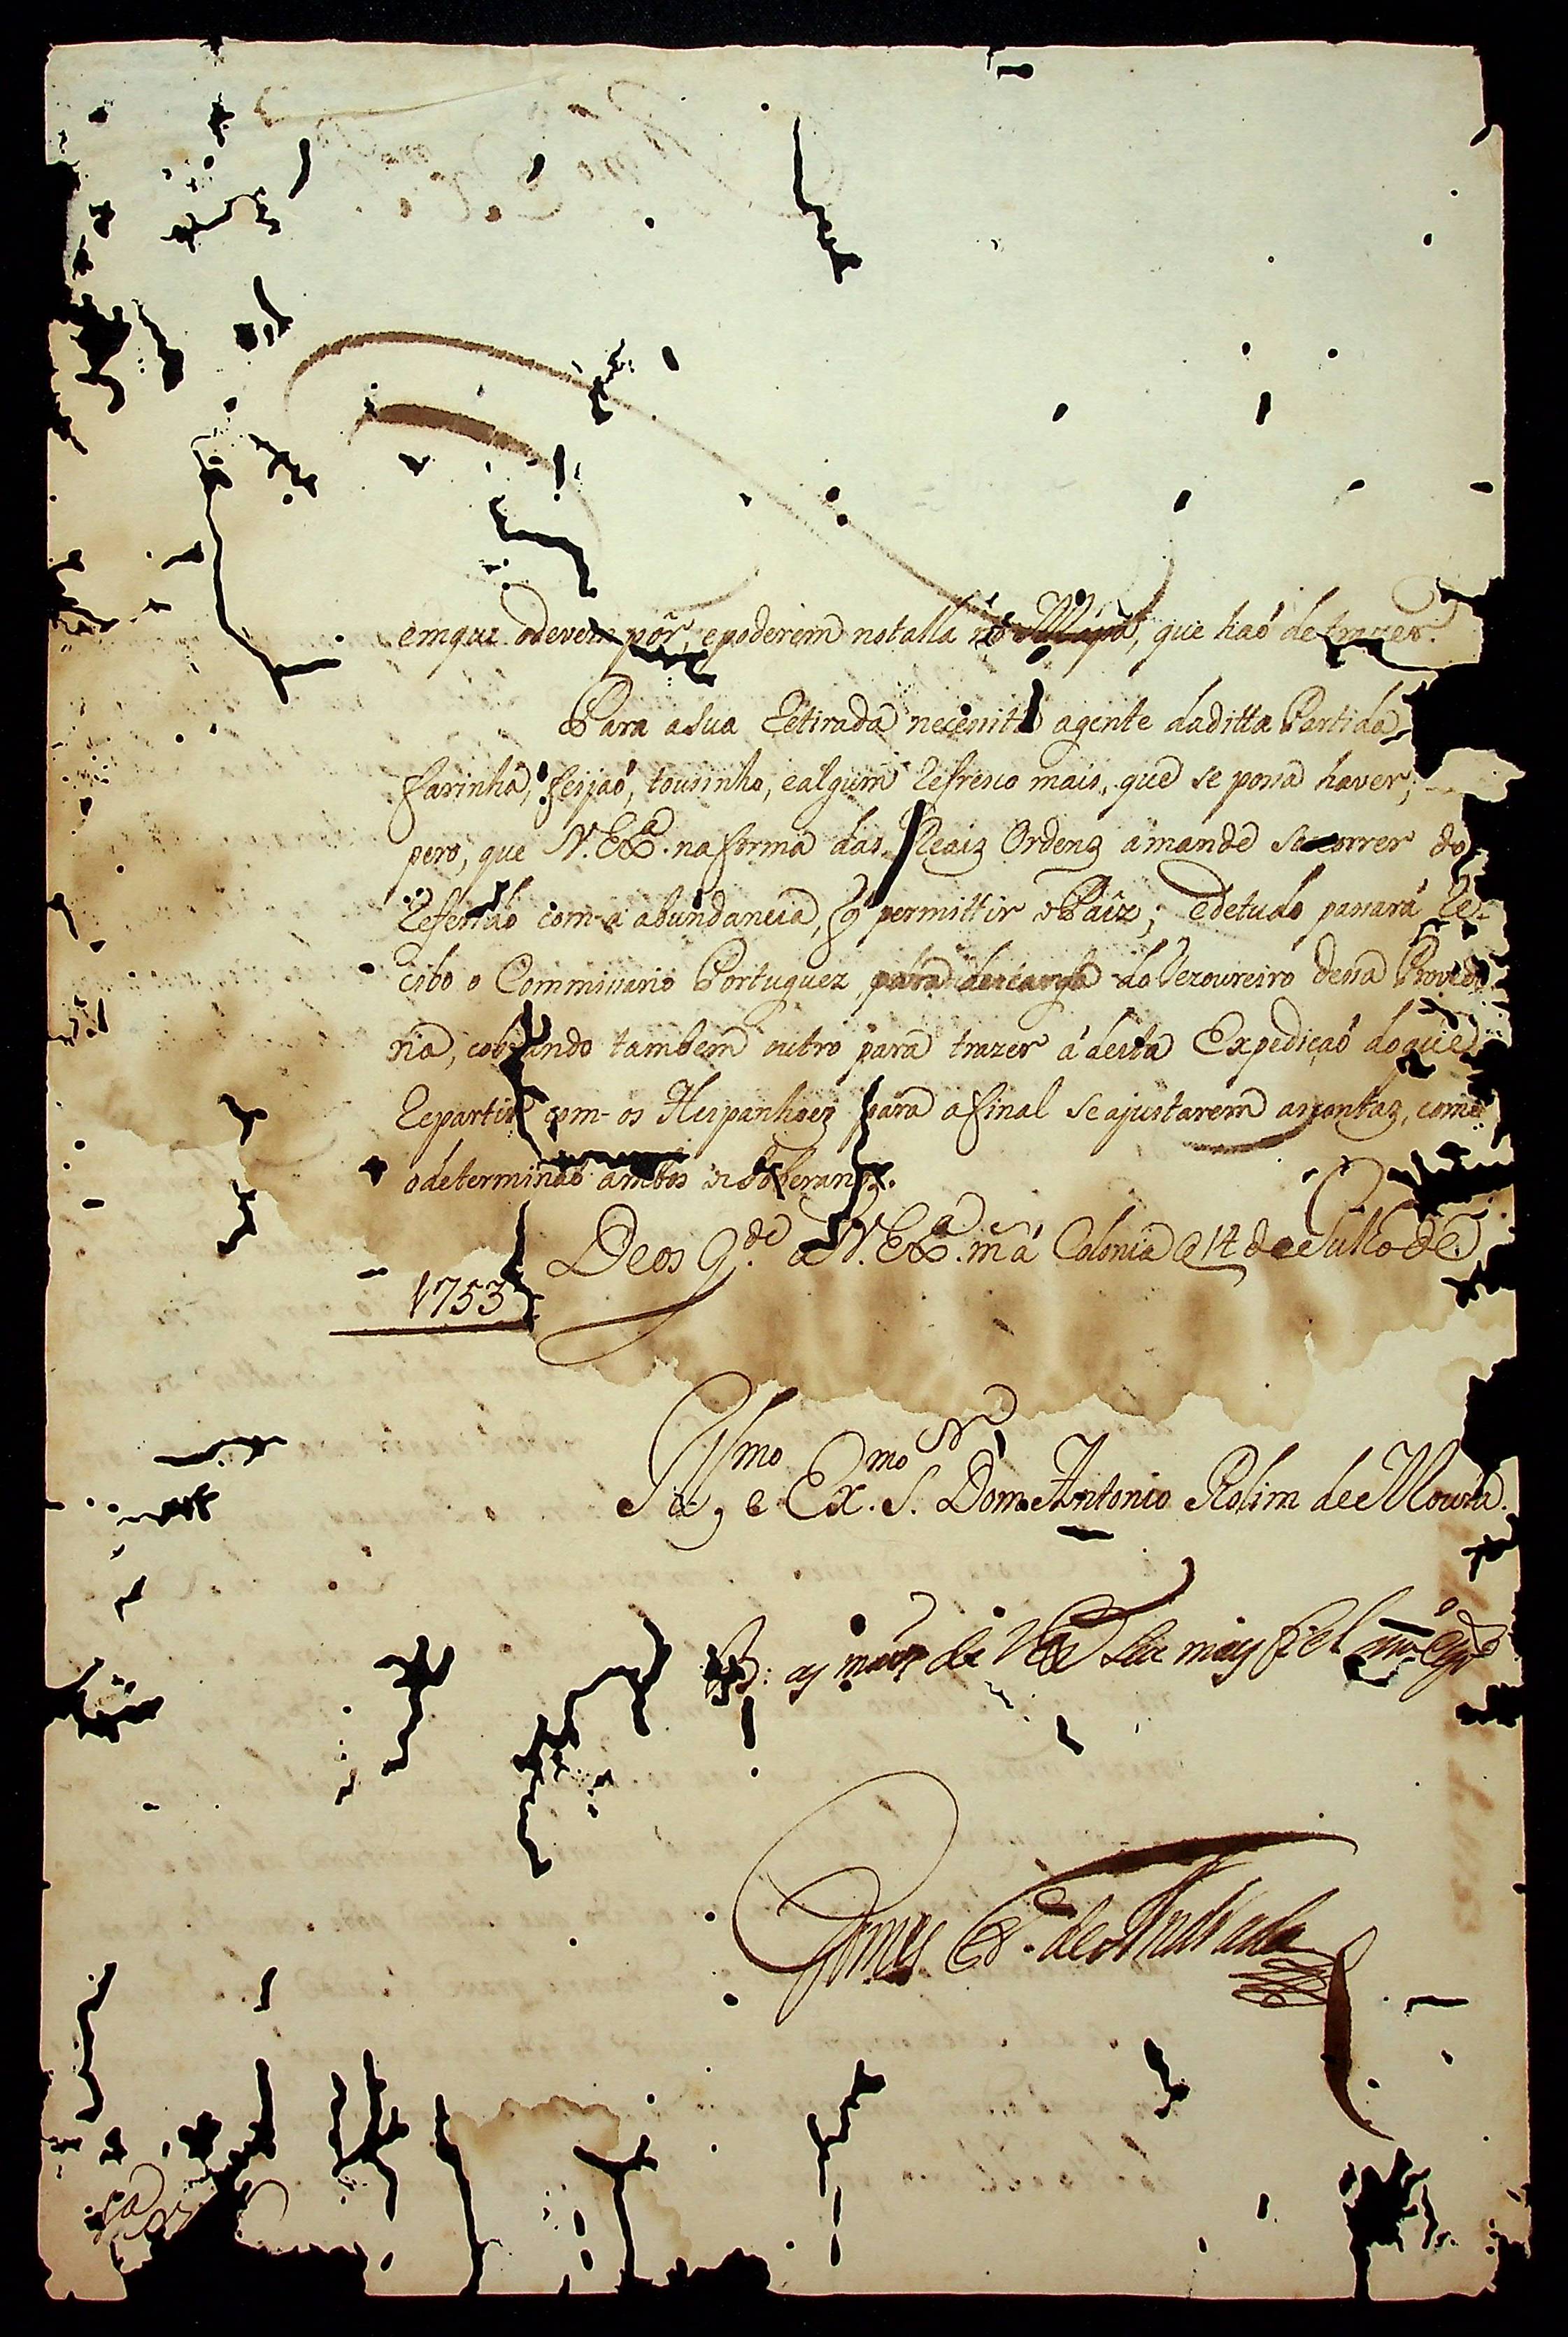 emque odevem pôr, epoderem notalla no Mapa, que haõ de trazer.
Para asua Retirada necessita agente daditta Partida
farinha, feijaõ, tousinho, ealgum Refresco mais, que se possa haver;
pero, que V. Exª. na forma das Reaiz Ordenz amande socorrer do
Referido com a abundancia, q̃ permittir o Paiz; Edetudo passará Re-
cibo o Commissario Portuguez para descarga do Tezoureiro dessa Provedo
ria, cobrando tambem outro para trazer á desta Expediçaõ doque
Repartir com os Hespanhoez para afinal seajustarem ascontaz, como
odeterminaõ ambos os Soberanos.
Deos g.de a V. Exª. m a Colonia a 14 de Julho de
1753
Illmo, e Exmo S.r Dom Antonio Rolim de Moura.
B. as maos de V Ex seu mais fiel
Gomes Fr. de Andrada